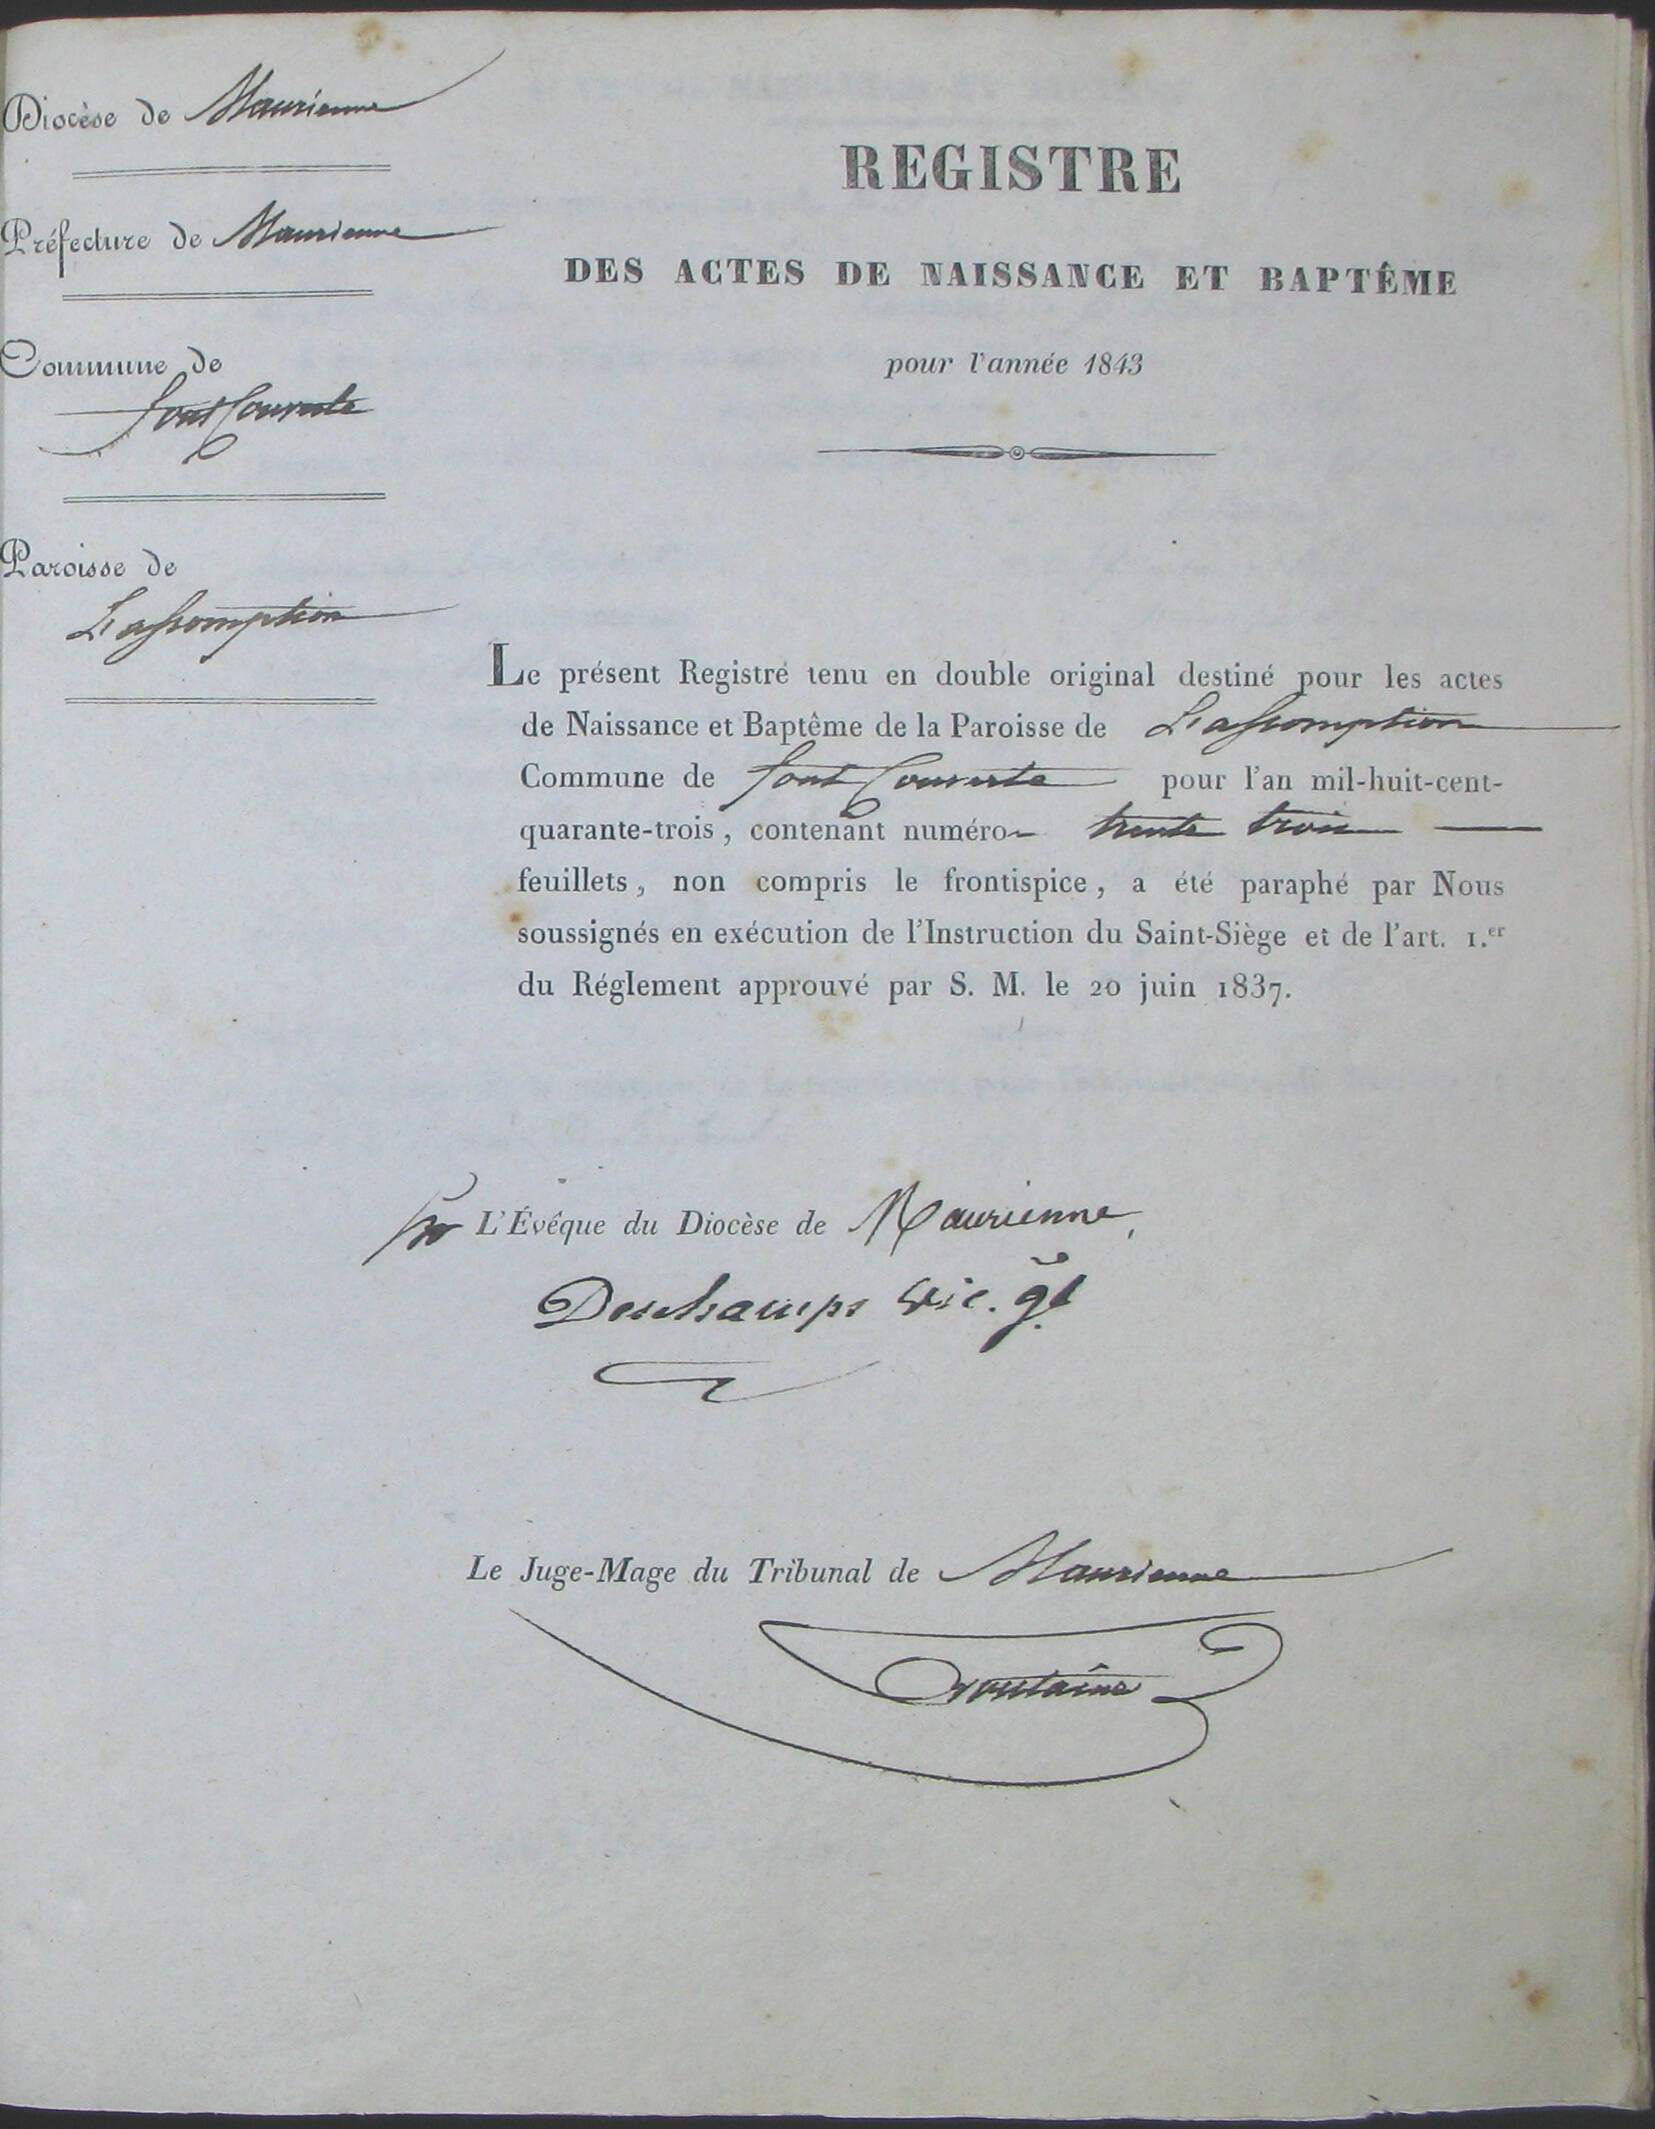 Diocèse de Maurienne
Préfecture de Maurienne
Commune de
font Couverte
Paroisse de
L'assomption
REGISTRE
DES ACTES DE NAISSANCE ET BAPTÊME
pour l'année 1843
Le présent Registre tenu en double original destiné pour les actes
de Naissance et Baptême de la Paroisse de L'assomption
Commune de font Couverte pour l'an mil-huit-cent-
quarante-trois, contenant numéro trente trois
feuillets, non compris le frontispice, a été paraphé par Nous
soussignés en exécution de l'Instruction du Saint-Siège et de l'art. 1.er
du Réglement approuvé par S. M. le 20 juin 1837.
pr L'Évêque du Diocèse de Maurienne,
Deschamps vic. gl
Le Juge-Mage du Tribunal de Maurienne